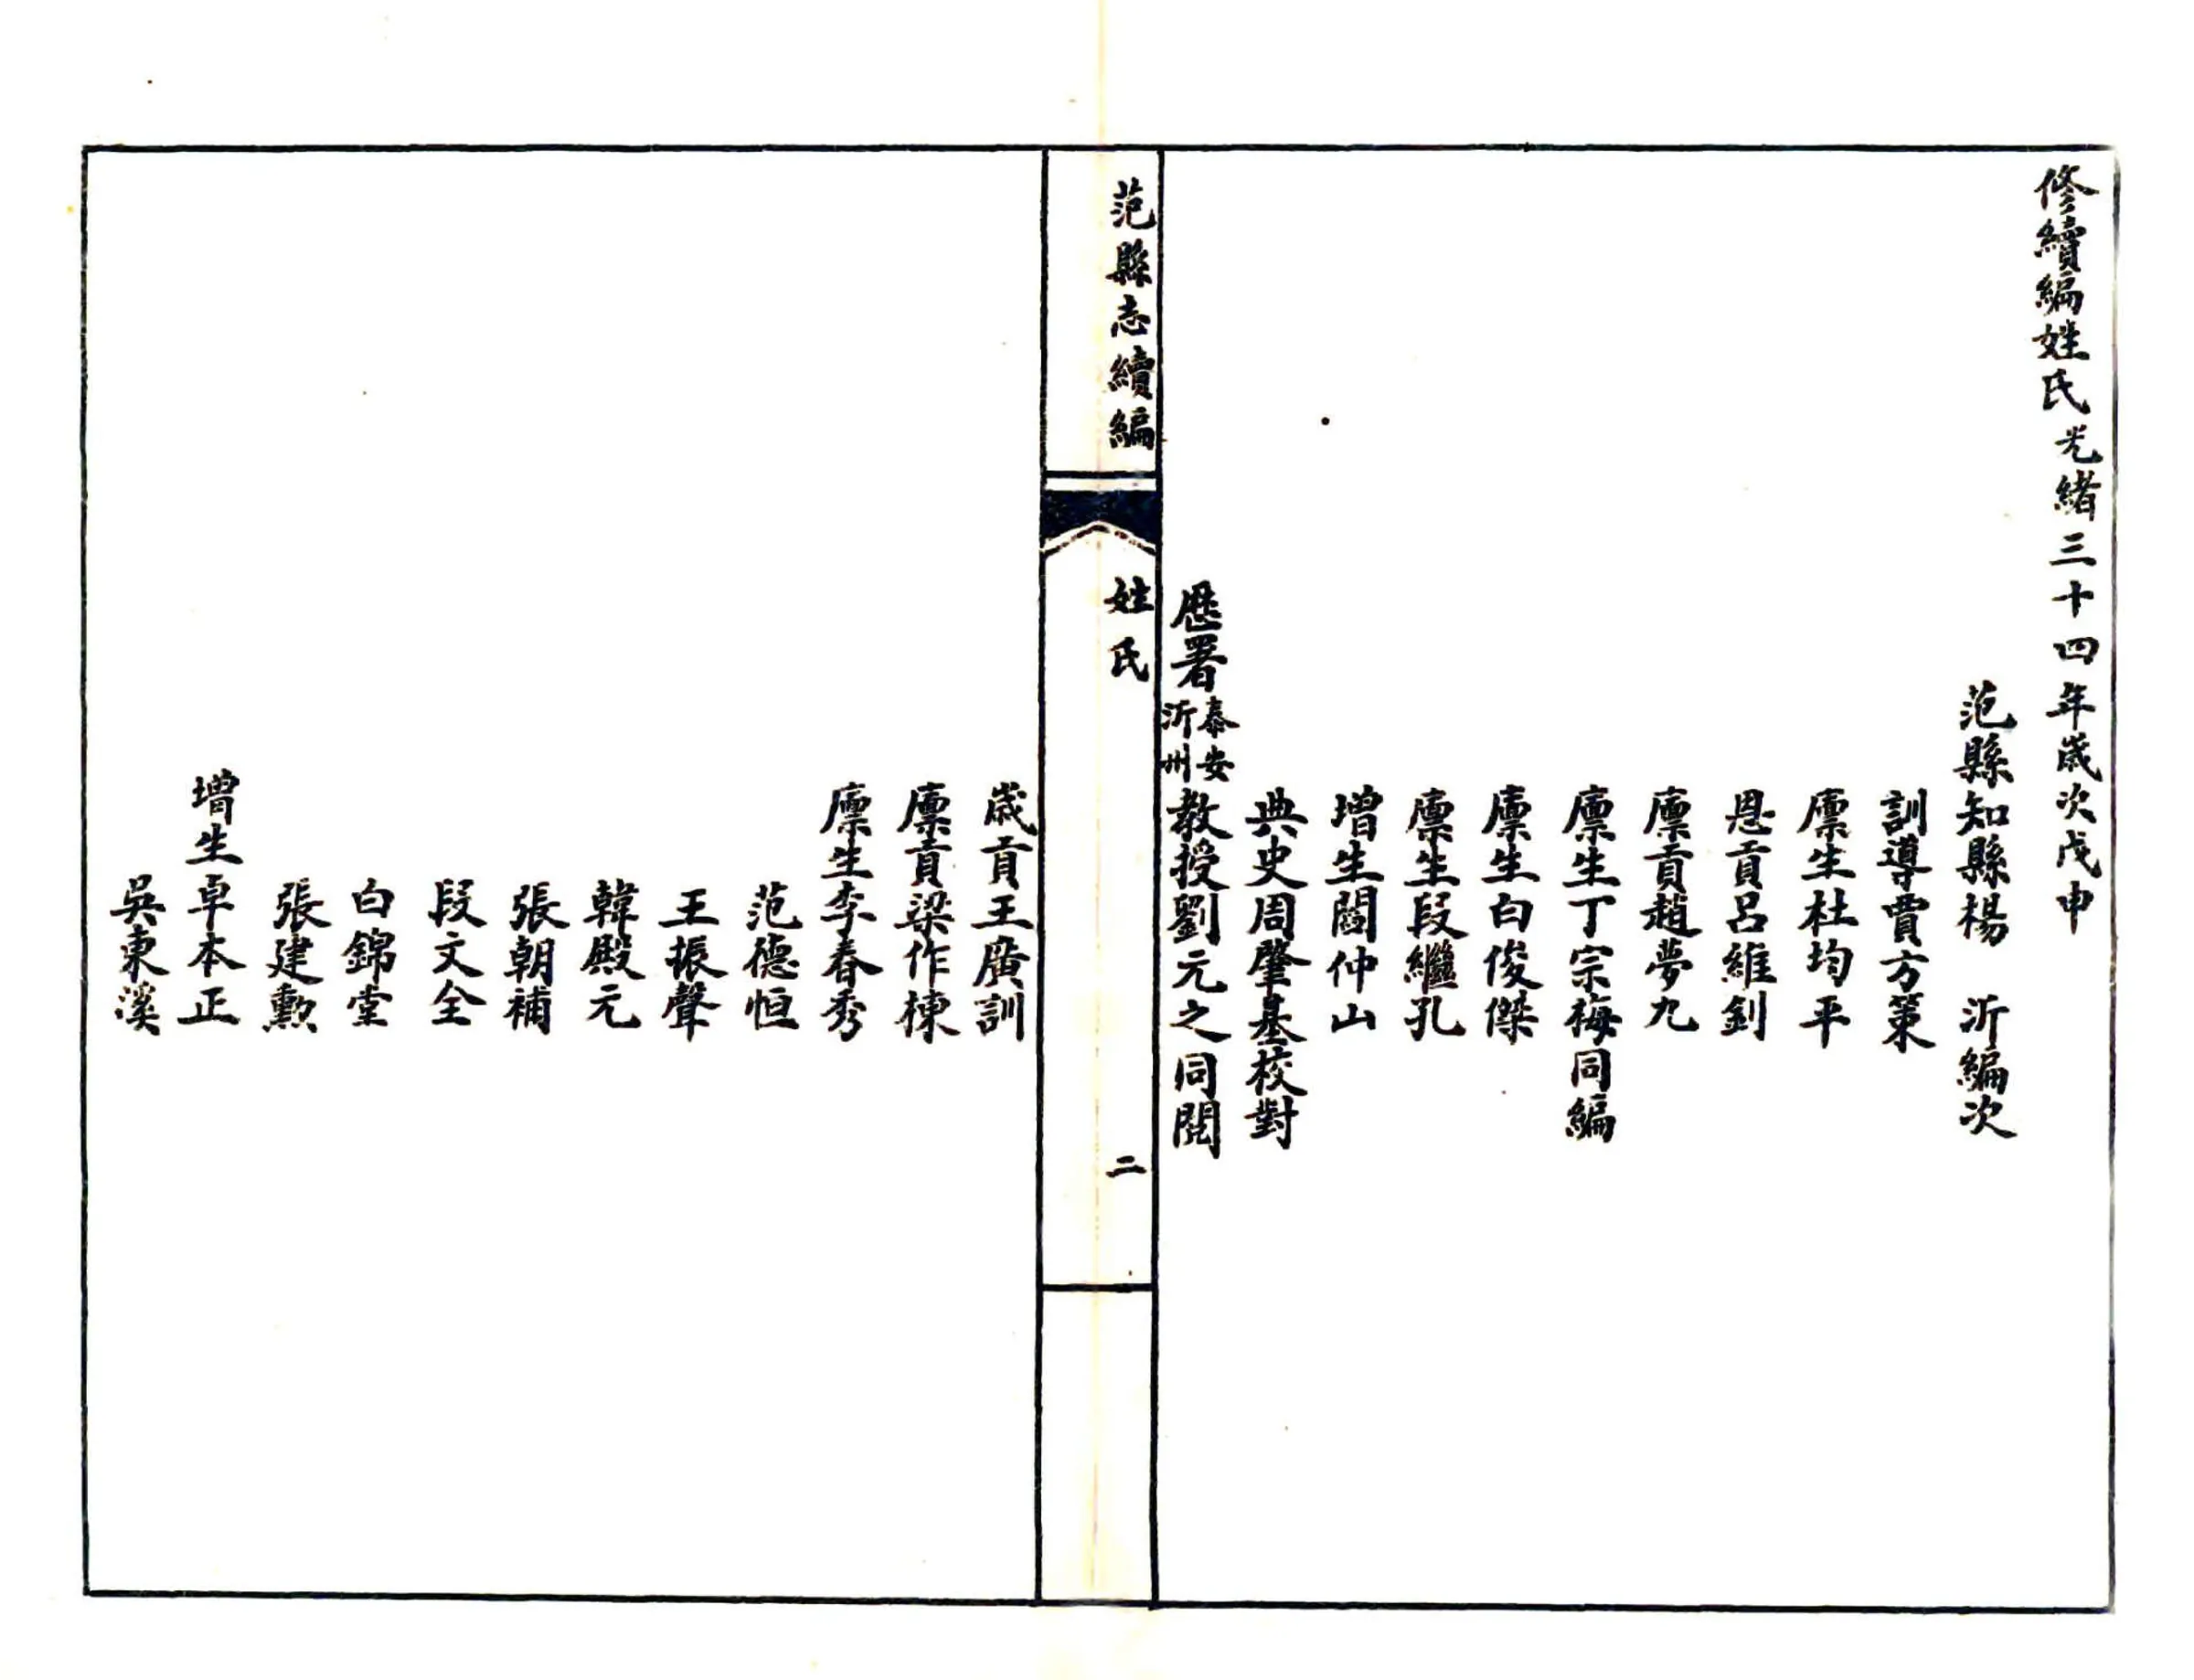 修續編姓氏光緒三十四年歲次戊申
范縣知縣楊　沂編次
訓導賈方策
廩生杜均平
恩貢呂維釗
廩貢趙夢九
廩生丁宗梅同編
廩生白俊傑
廩生段繼孔
增生閻仲山
典史周肇基校對
歷署泰安沂州教授劉元之同閱
范縣志續編
姓氏
二
歲貢王廣訓
廩貢梁作棟
廩生李春秀
范德恒
王振聲
韓殿元
張朝補
段文全
白錦堂
張建勳
增生卓本正
吳東溪